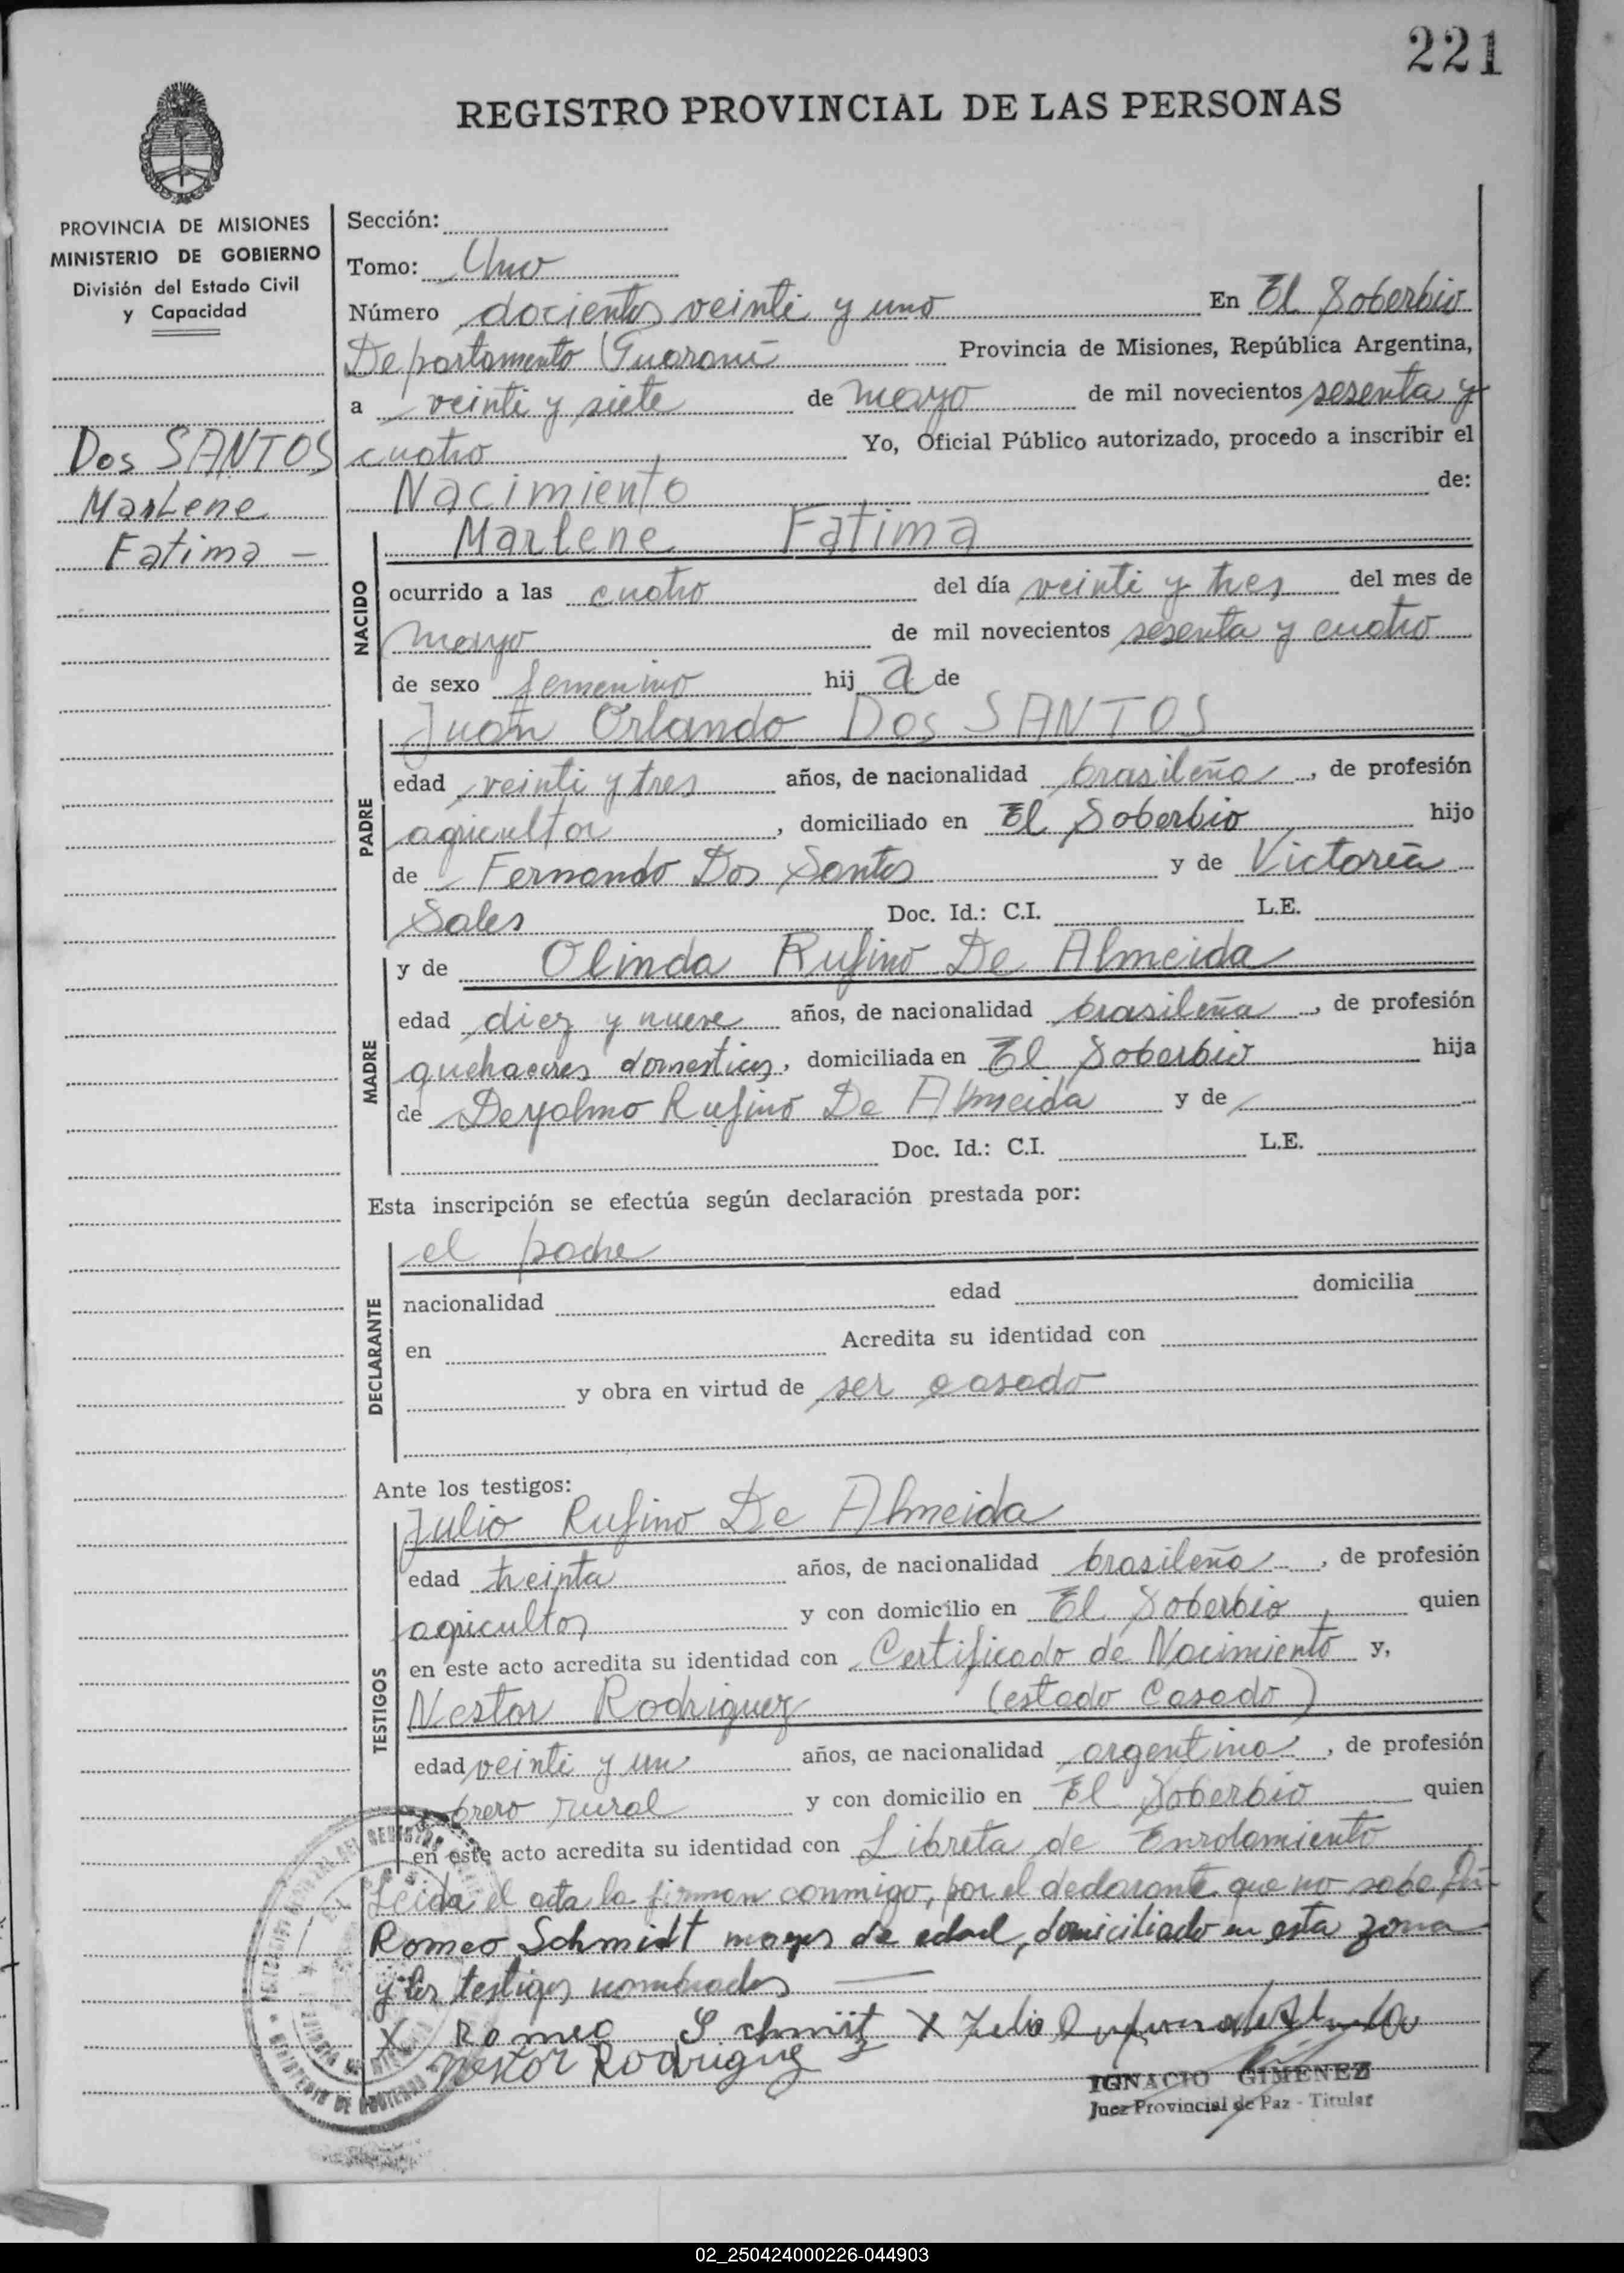 221
REGISTRO PROVINCIAL DE LAS PERSONAS
PROVINCIA DE MISIONES
MINISTERIO DE GOBIERNO
División del Estado Civil
y Capacidad
Dos SANTOS
Marlene
Fatima —
Sección:
Tomo: Uno
Número docientos veinti y uno En El Soberbio
Departamento Guaraní Provincia de Misiones, República Argentina,
a veinti y siete de mayo de mil novecientos sesenta y
cuatro Yo, Oficial Público autorizado, procedo a inscribir el
Nacimiento de:
NACIDO
Marlene Fatima
ocurrido a las cuatro del día veinti y tres del mes de
mayo de mil novecientos sesenta y cuatro
de sexo femenino hij a de
PADRE
Juan Orlando Dos SANTOS
edad veinti y tres años, de nacionalidad brasileña, de profesión
agricultor, domiciliado en El Soberbio hijo
de Fernando Dos Santos y de Victoria
Sales Doc. Id.: C.I. L.E.
MADRE
y de Olinda Rufino De Almeida
edad diez y nueve años, de nacionalidad brasileña, de profesión
quehaceres domesticos, domiciliada en El Soberbio hija
de Deyalmo Rufino De Almeida y de
Doc. Id.: C.I. L.E.
Esta inscripción se efectúa según declaración prestada por:
DECLARANTE
el padre
nacionalidad edad domicilia
en Acredita su identidad con
y obra en virtud de ser casado
Ante los testigos:
TESTIGOS
Julio Rufino De Almeida
edad treinta años, de nacionalidad brasileña, de profesión
agricultor y con domicilio en El Soberbio, quien
en este acto acredita su identidad con Certificado de Nacimiento y,
Nestor Rodriguez (estado Casado)
edad veinti y un años, de nacionalidad argentina, de profesión
obrero rural y con domicilio en El Soberbio quien
en este acto acredita su identidad con Libreta de Enrolamiento
Leida el acta la firman conmigo, por el declarante que no sabe
Romeo Schmidt mayor de edad, domiciliado en esta zona
y los testigos nombrados
X Romeo Schmit X Julio Rufino de Almeida
Nestor Rodriguez
IGNACIO GIMENEZ
Juez Provincial de Paz - Titular
02_250424000226-044903